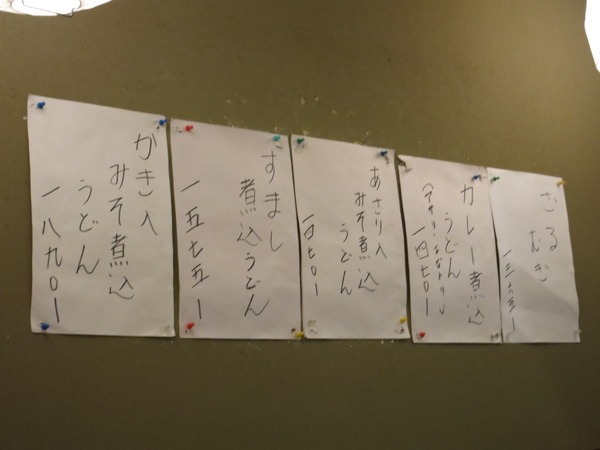 ざる
むぎ
一三六五ー
カレー煮込
うどん
一四七〇ー
あさり入
みそ煮込
うどん
一四七〇ー
すまし
煮込うどん
一五七五ー
かき入
みそ煮込
うどん
一八九〇ー